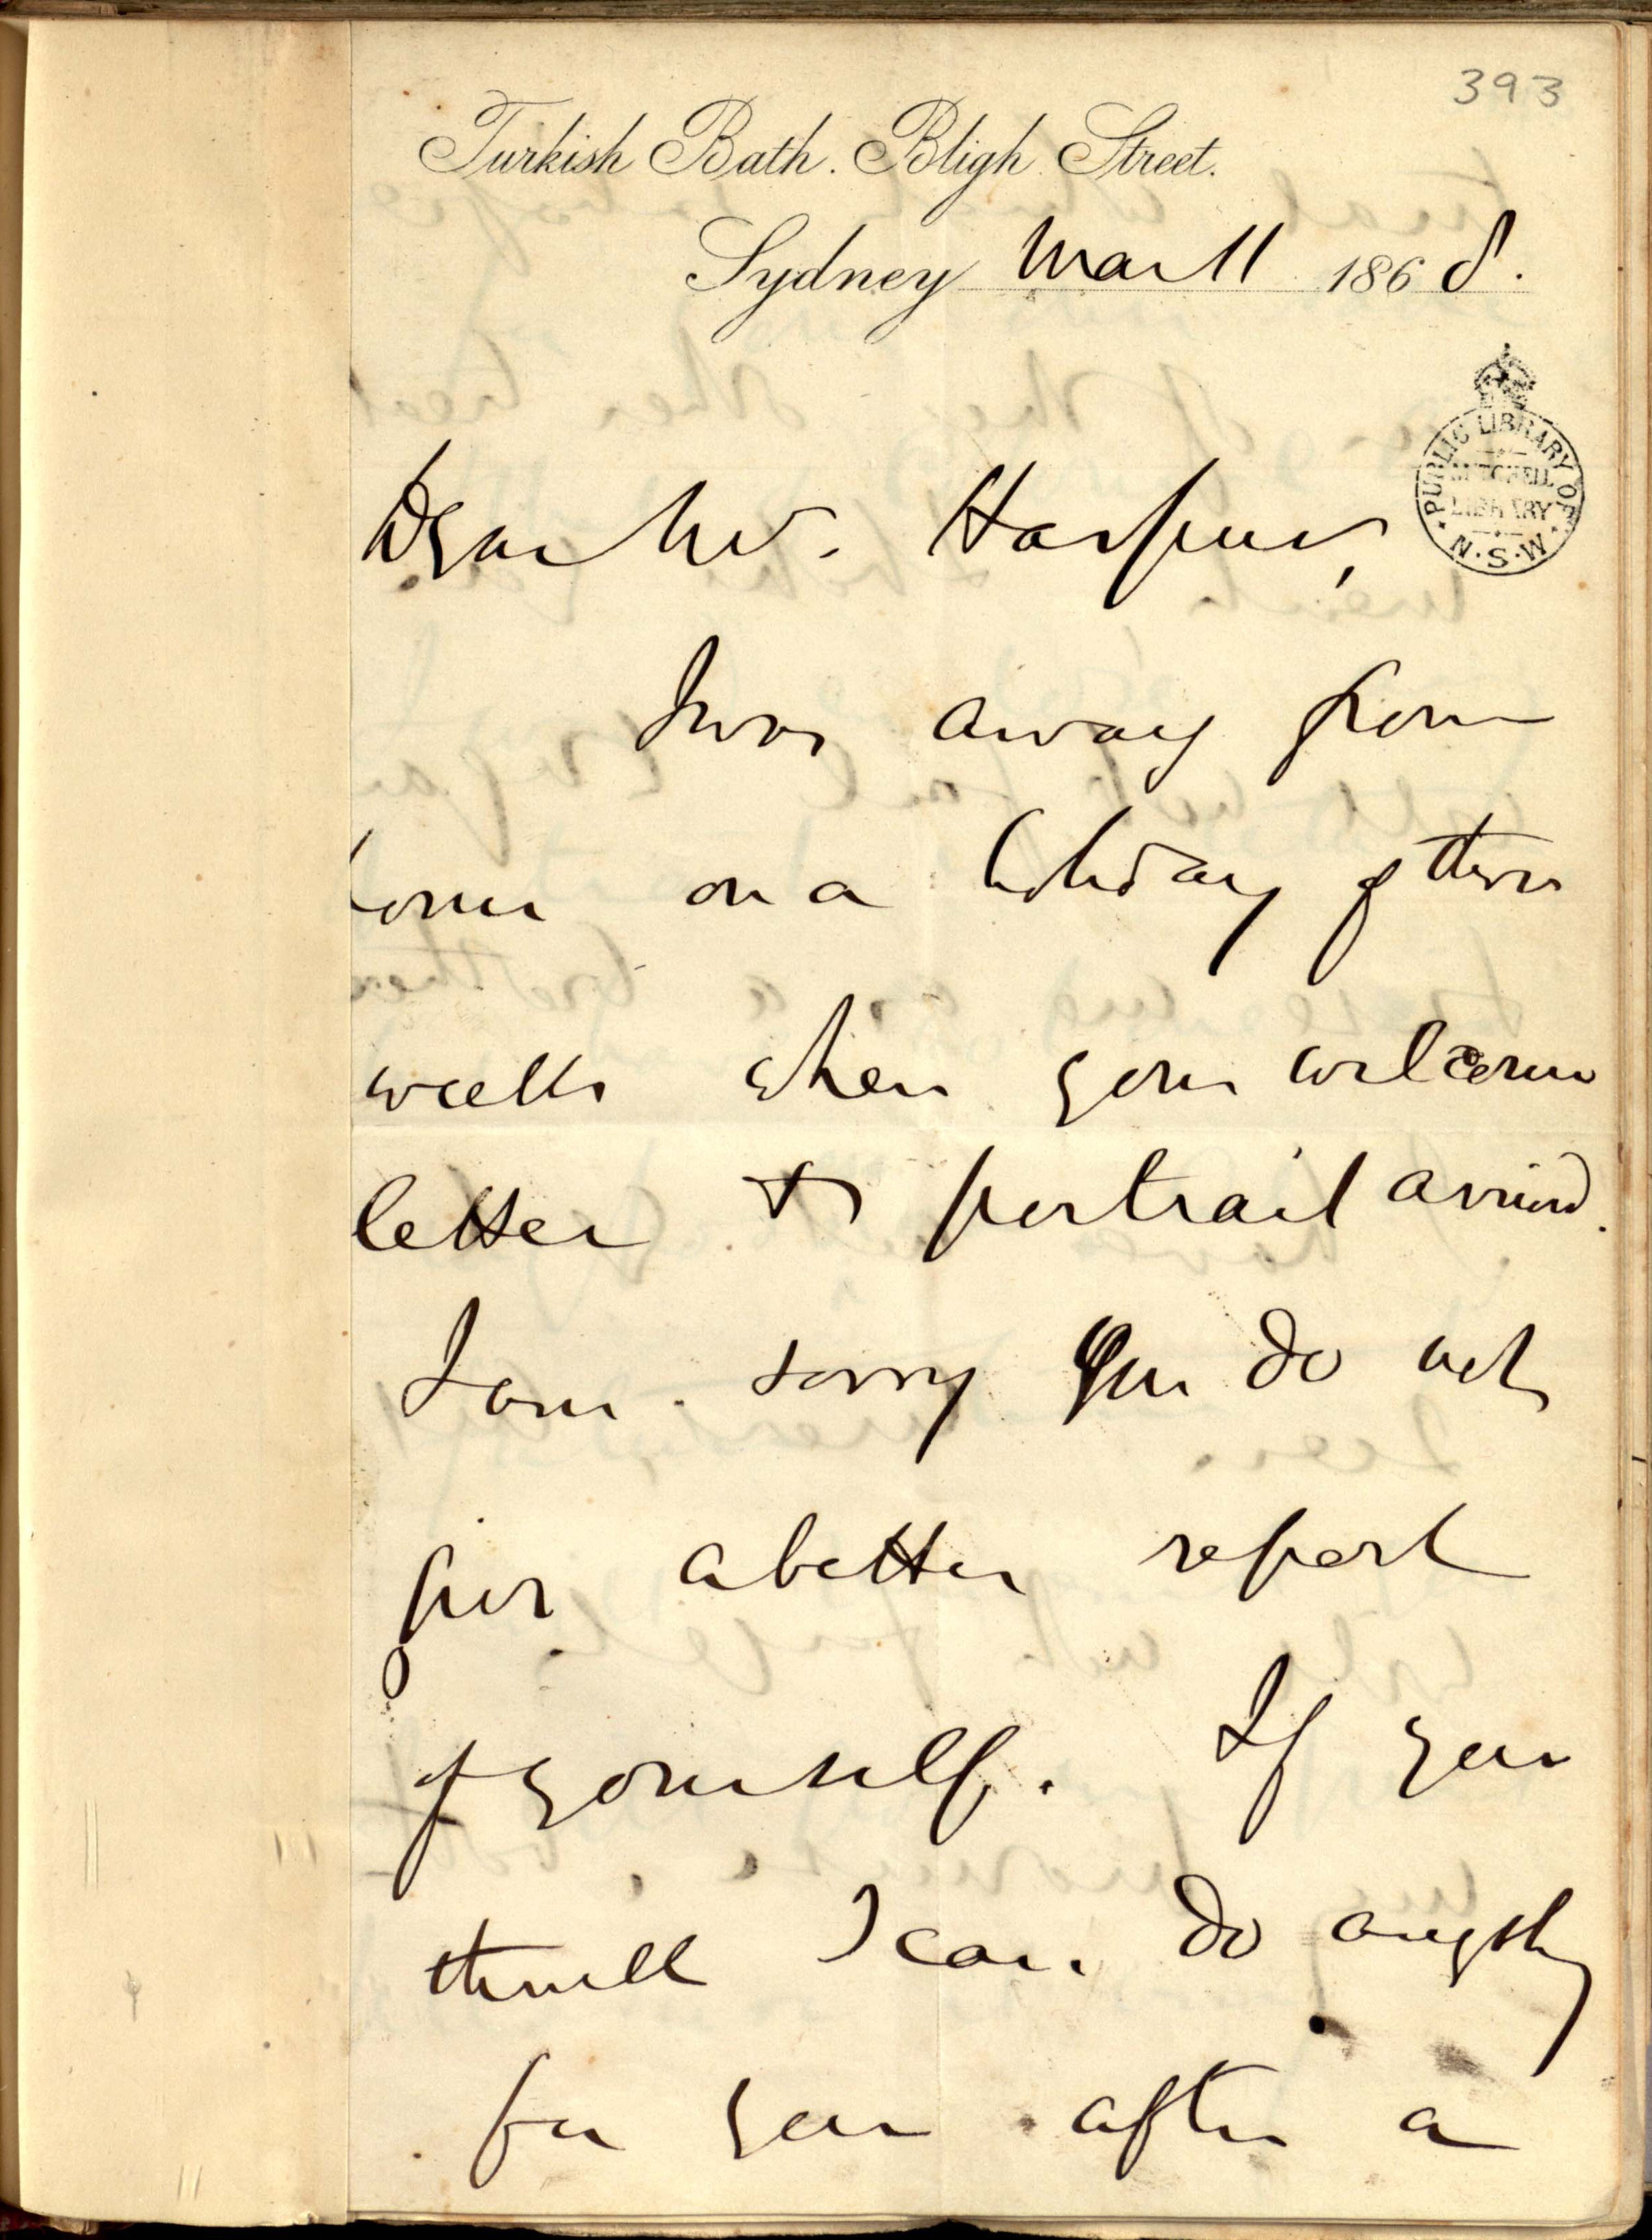 393
Turkish Bath. Bligh Street.
Sydney Mar 11 1868.
PUBLIC LIBRARY OF N.S.W.
MITCHELL
LIBRARY
Dear Mr. Harpur,
I was away from
home on a holiday of three
weeks when your welcome
letter & portrait arrived.
I am sorry you do not
give a better report
of yourself. If you
think I can do anything
for you after a